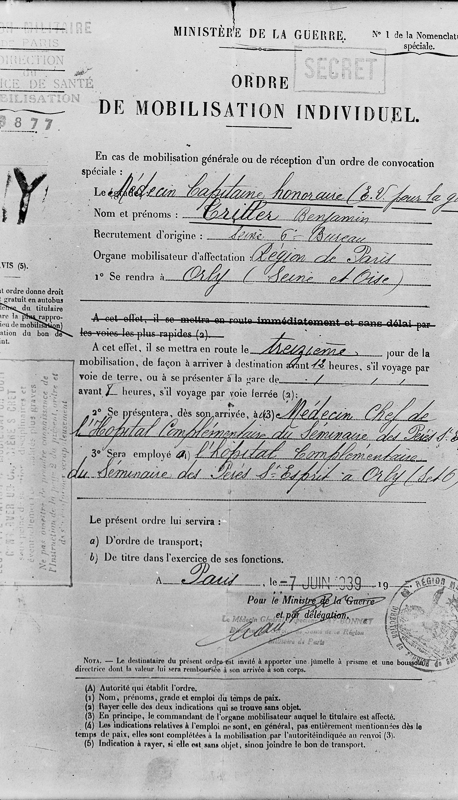 MINISTÈRE DE LA GUERRE.
N° 1 de la Nomenclatu
spéciale.
ION MILITAIRE
DE PARIS
DIRECTION
du
ICE DE SANTÉ
BILISATION
8877
SECRET
ORDRE
DE MOBILISATION INDIVIDUEL.
En cas de mobilisation générale ou de réception d'un ordre de convocation
spéciale :
Le Médecin Capitaine honoraire (E.V. pour la gu
Nom et prénoms : Critter Benjamin
Recrutement d'origine : Seine 6e Bureau
Organe mobilisateur d'affectation : Région de Paris
1° Se rendra à Orly (Seine et Oise)
A cet effet, il se mettra en route immédiatement et sans délai par
les voies les plus rapides (2).
A cet effet, il se mettra en route le treizième jour de la
mobilisation, de façon à arriver à destination avant 12 heures, s'il voyage par
voie de terre, ou à se présenter à la gare de
avant heures, s'il voyage par voie ferrée (2);
2° Se présentera, dès son arrivée, à (3) Médecin Chef de
l'Hôpital Complémentaire du Séminaire des Pères St E
3° Sera employé à l'hôpital Complémentaire
du Séminaire des Pères St Esprit à Orly (S et O)
VIS (5).
nt ordre donne droit
gratuit en autobus
ence du titulaire
are la plus rappro-
ieu de mobilisation)
tation du bon de
nt.
Le présent ordre lui servira :
a) D'ordre de transport;
b) De titre dans l'exercice de ses fonctions.
A Paris, le -7 JUIN 1939 19
Pour le Ministre de la Guerre
et par délégation.
RÉGION
NOTA. — Le destinataire du présent ordre est invité à apporter une jumelle à prisme et une boussole
directrice dont la valeur lui sera remboursée à son arrivée à son corps.
(A) Autorité qui établit l'ordre.
(1) Nom, prénoms, grade et emploi du temps de paix.
(2) Rayer celle des deux indications qui se trouve sans objet.
(3) En principe, le commandant de l'organe mobilisateur auquel le titulaire est affecté.
(4) Les indications relatives à l'emploi ne sont, en général, pas entièrement mentionnées dès le
temps de paix, elles sont complétées à la mobilisation par l'autorité indiquée au renvoi (3).
(5) Indication à rayer, si elle est sans objet, sinon joindre le bon de transport.